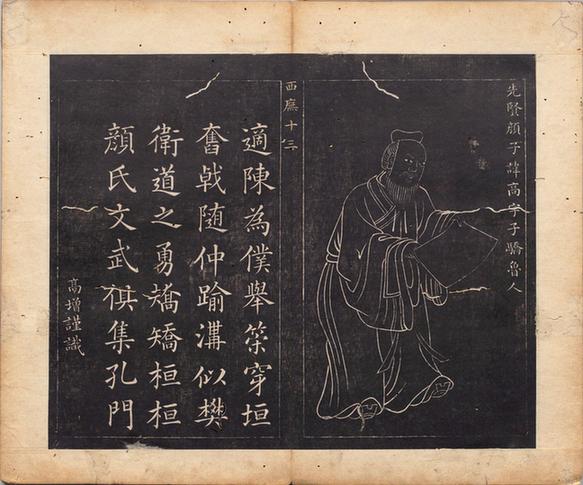 先賢顔子諱高字子驕魯人
西廡十三
適陳為僕舉筞穿垣
奮戟随仲踰溝似樊
衛道之勇矯矯桓桓
顔氏文武集孔門
高增謹識